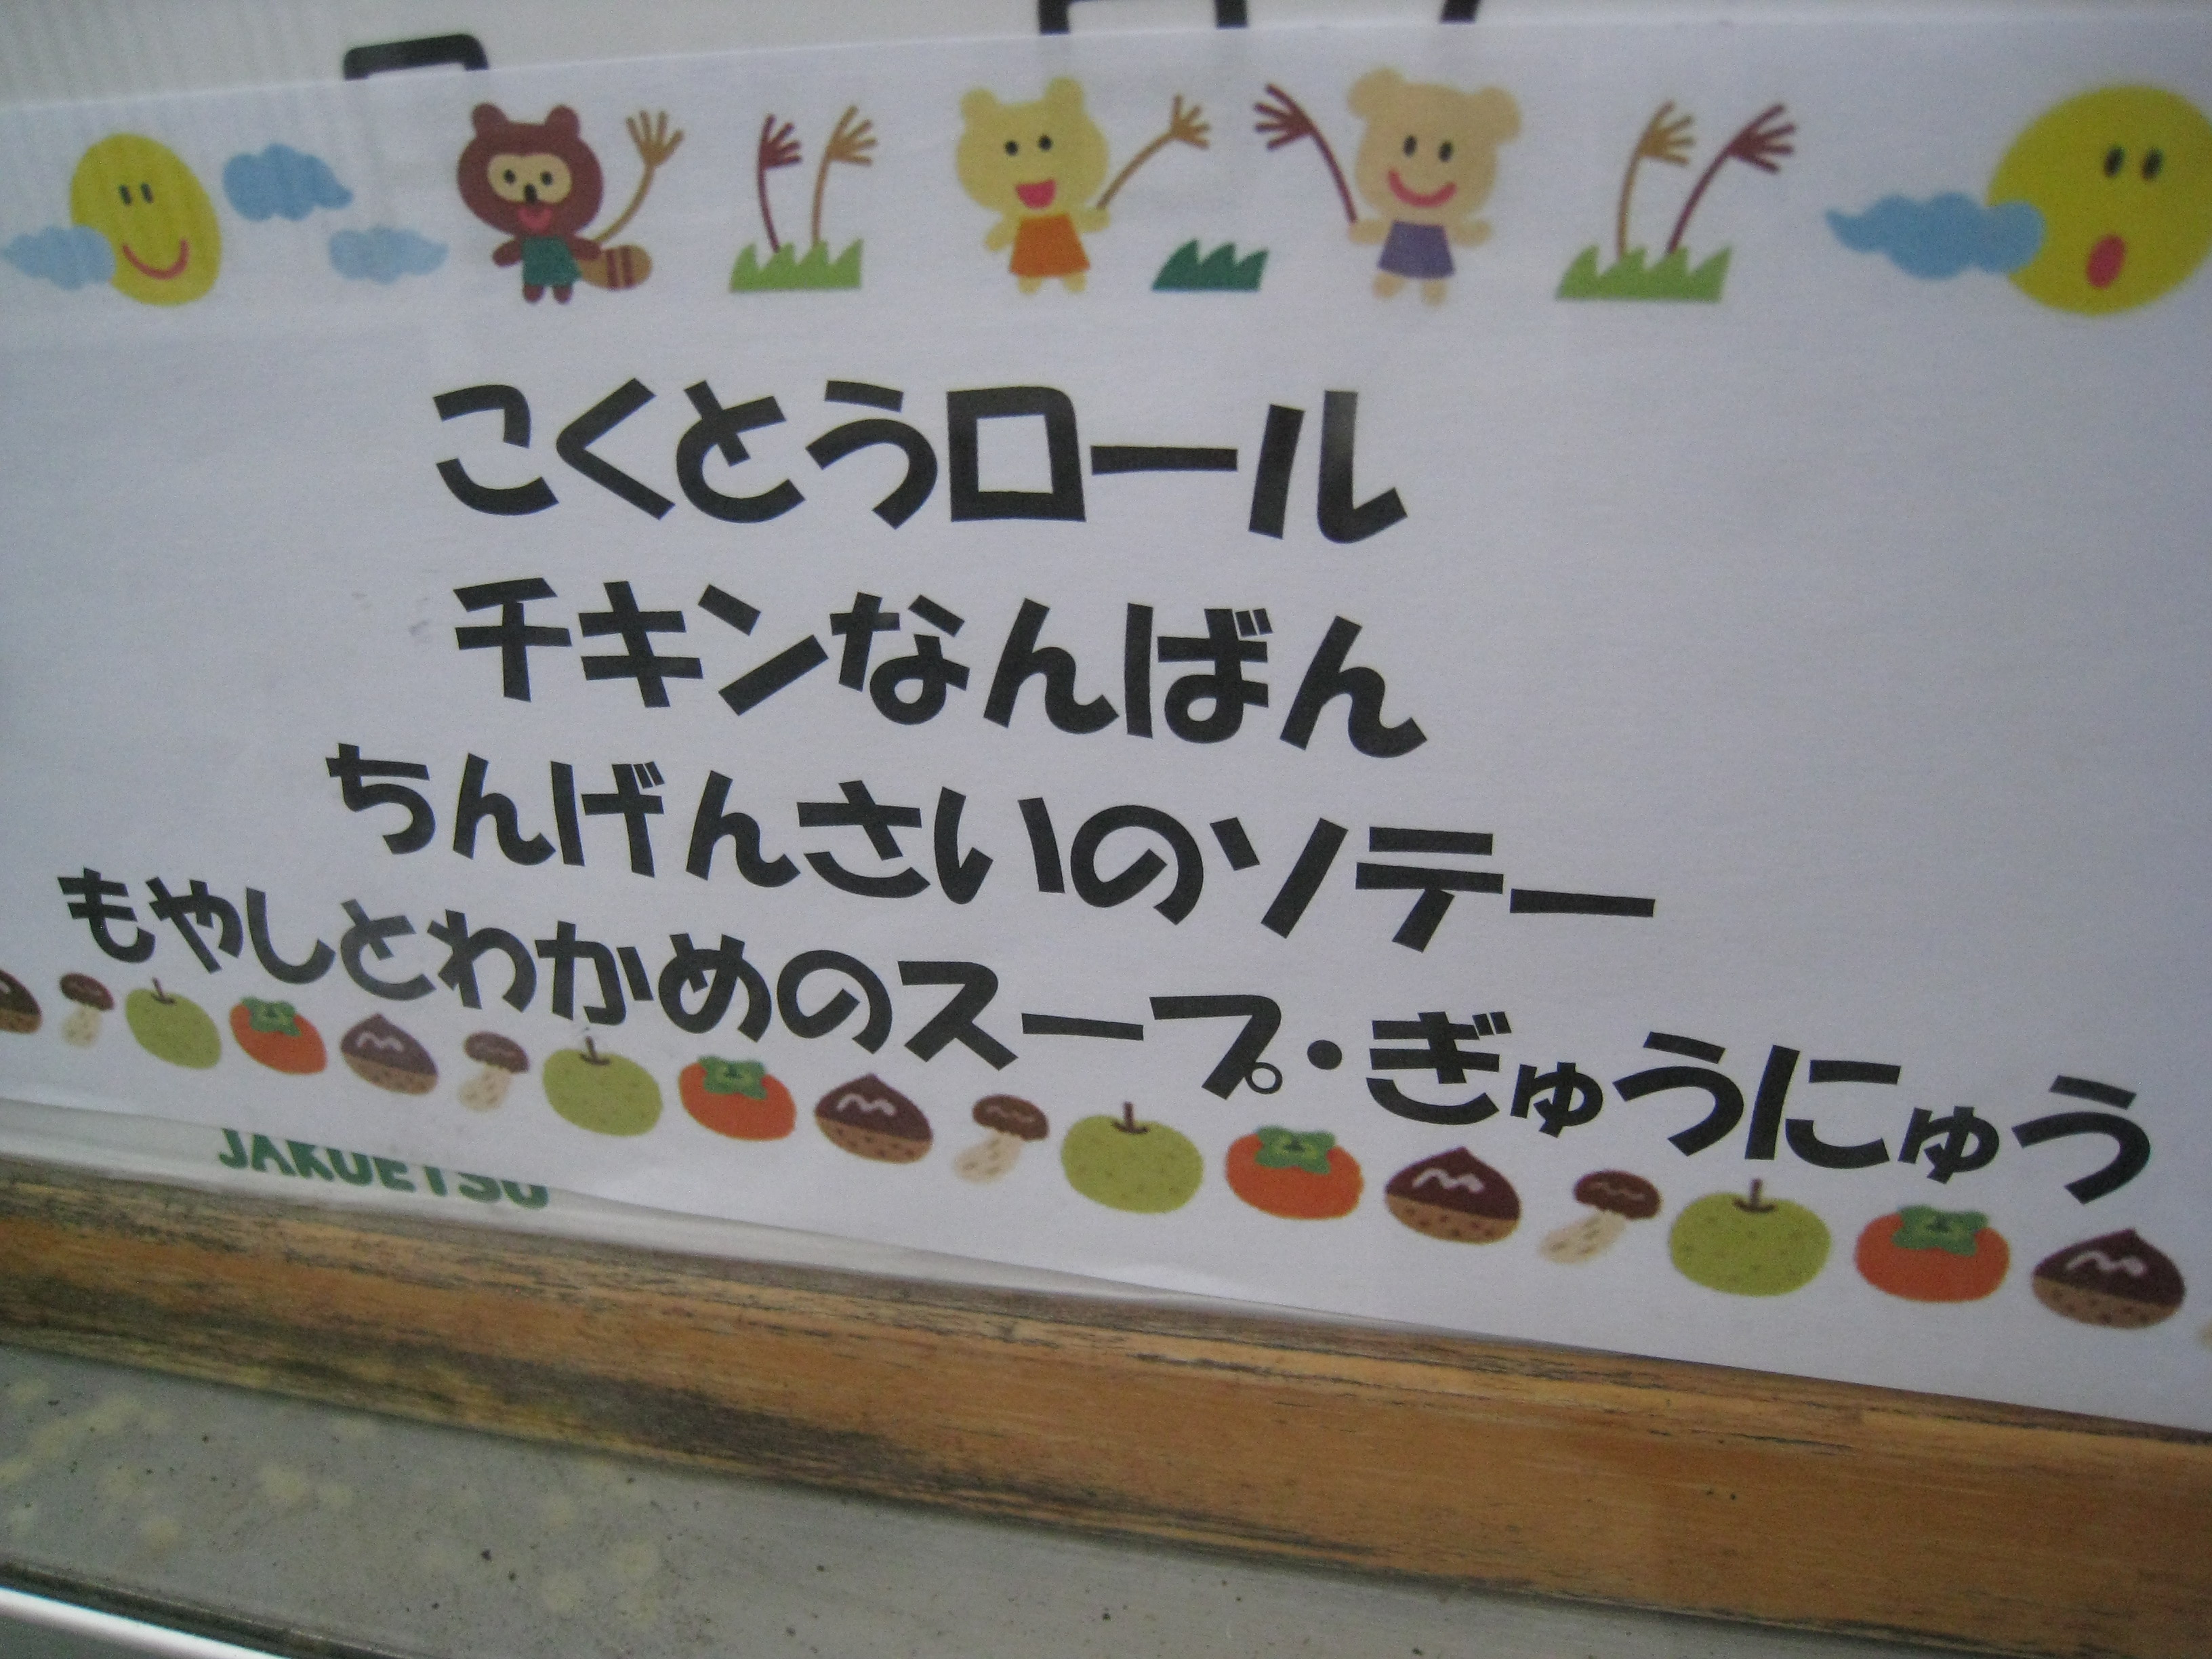 こくとうロール
チキンなんばん
ちんげんさいのソテー
もやしとわかめのスープ・ぎゅうにゅう
JAKUETSU